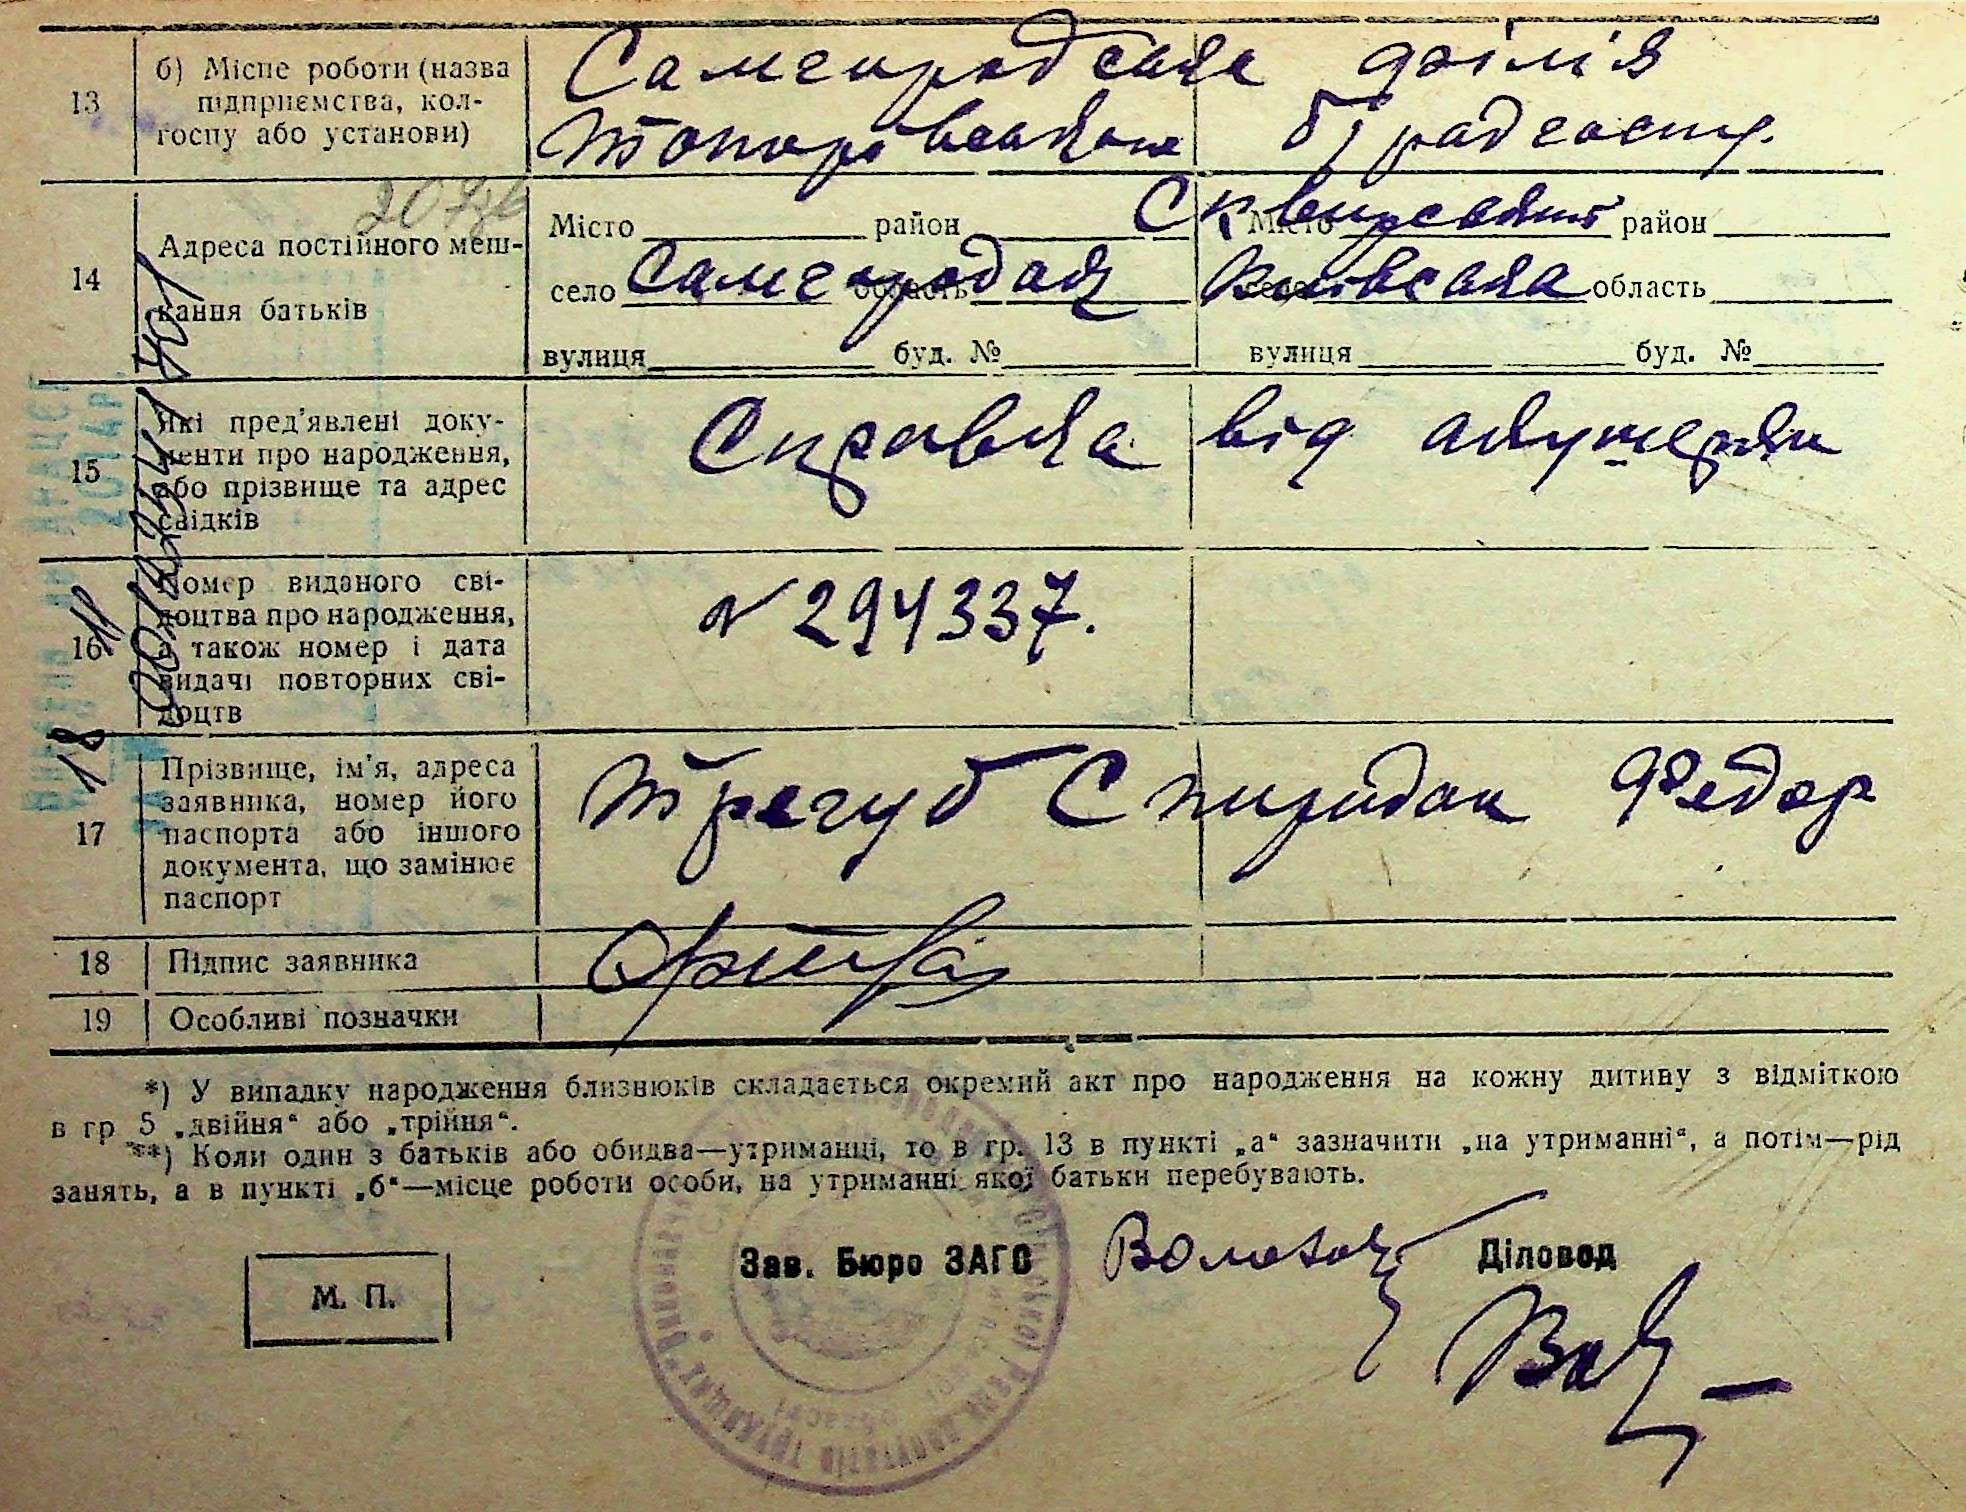 13 б) Місце роботи (назва підприємства, колгоспу або установи) Самгородська філія
бурадгоспу.
207зв
14 Адреса постійного мешкання батьків
Місто район Сквирський Місто район
село Самгородок область Київська село область
вулиця буд. № вулиця буд. №
15 Які пред'явлені документи про народження, або прізвище та адрес свідків Справка від акушерки
16 Номер виданого свідоцтва про народження, а також номер і дата видачі повторних свідоцтв № 294337.
17 Прізвище, ім'я, адреса заявника, номер його паспорта або іншого документа, що замінює паспорт Трегуб Спиридон Федор
18 Підпис заявника
19 Особливі позначки
*) У випадку народження близнюків складається окремий акт про народження на кожну дитину з відміткою
в гр 5 „двійня“ або „трійня“.
**) Коли один з батьків або обидва—утриманці, то в гр. 13 в пункті „а“ зазначити „на утриманні“, а потім—рід
занять, а в пункті „б“—місце роботи особи, на утриманні якої батьки перебувають.
Зав. Бюро ЗАГС Діловод
М. П.
депутатів трудящих